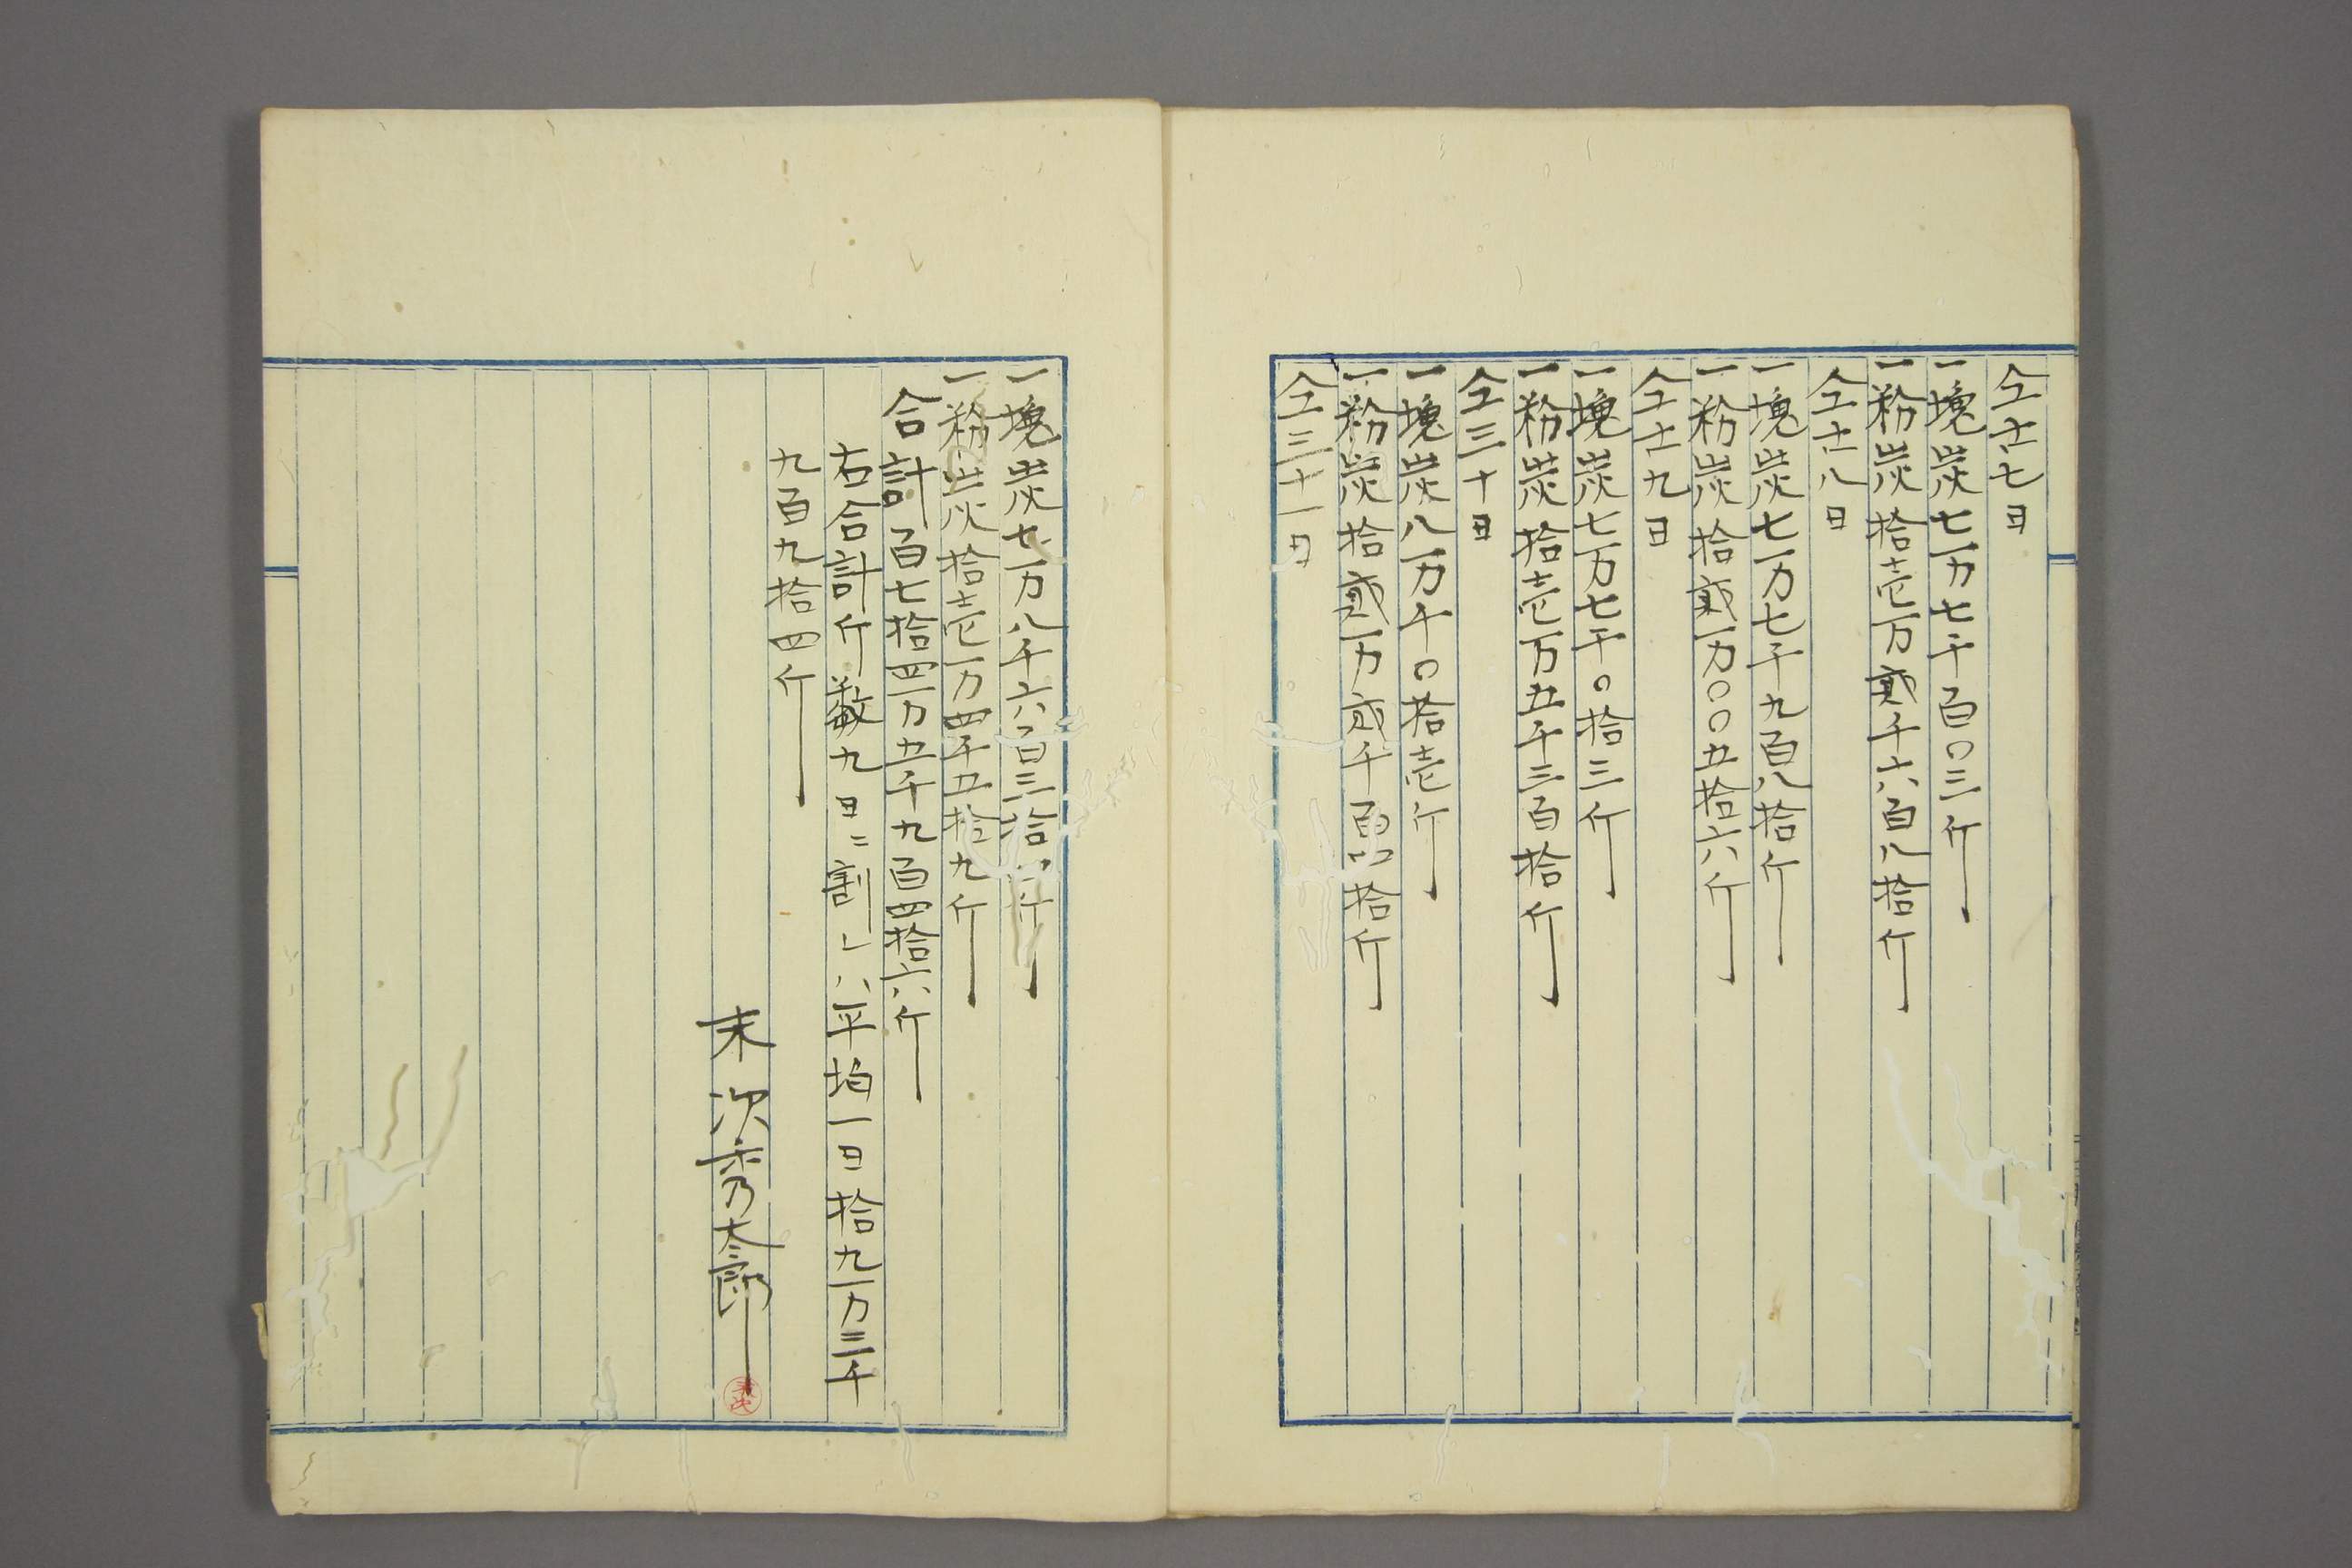 仝廿七日
一塊炭七万七千百〇三斤
一粉炭拾壱万貮千六百八拾斤
仝廿八日
一塊炭七万七千九百八拾斤
一粉炭拾貮万〇〇五拾六斤
仝廿九日
一塊炭七万七千〇拾三斤
一粉炭拾壱万五千三百拾斤
仝三十日
一塊炭八万千〇拾壱斤
一粉炭拾貮万貮千百拾斤
仝三十一日
一塊炭七万八千六百三拾斤
一粉炭拾壱万四千五拾九斤
合計百七拾四万五千九百四拾六斤
右合計斤数九日ニ割レハ平均一日拾九万三千
九百九拾四斤
末次秀太郎